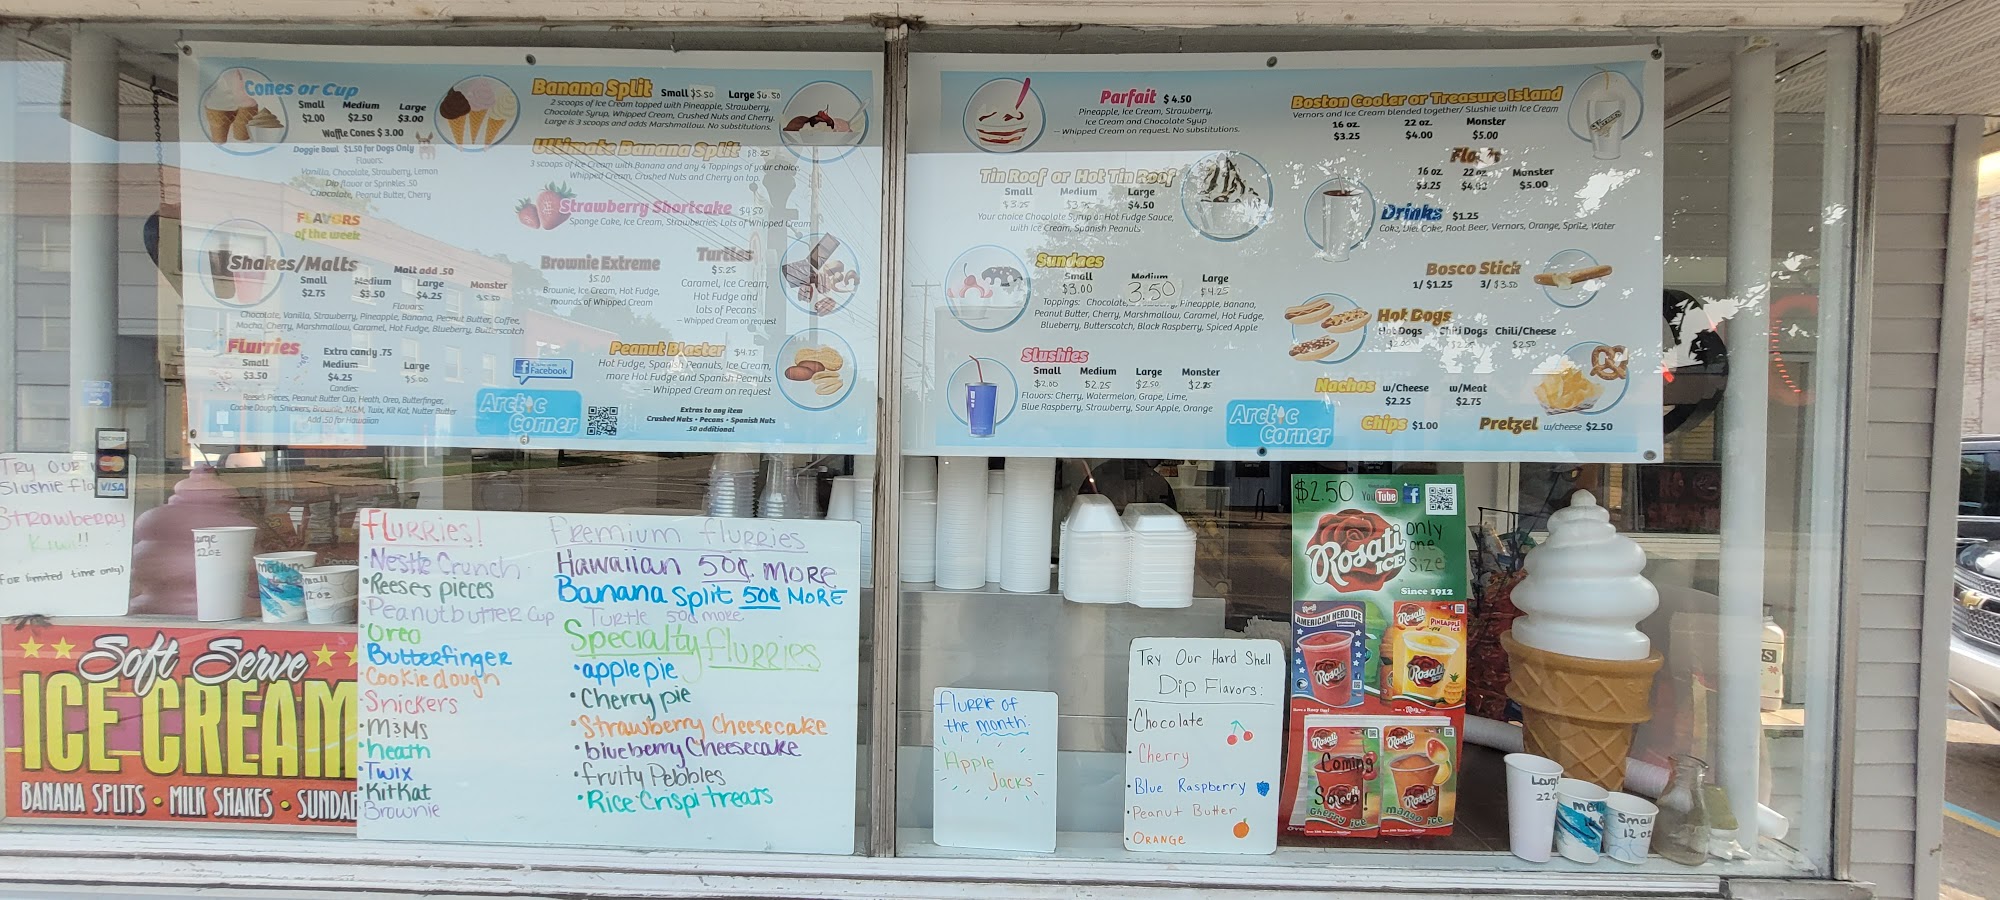 Cones or Cup
Small Medium Large
$2.00 $2.50 $3.00
Waffle Cones $ 3.00
Doggie Bowl $1.50 for Dogs Only
Flavors:
Vanilla, Chocolate, Strawberry, Lemon
Dip flavor or Sprinkles .50
Chocolate, Peanut Butter, Cherry
FLAVORS
of the week
Shakes/Malts Malt add .50
Small Medium Large Monster
$2.75 $3.50 $4.25 $5.50
Flavors:
Chocolate, Vanilla, Strawberry, Pineapple, Banana, Peanut Butter, Coffee,
Mocha, Cherry, Marshmallow, Caramel, Hot Fudge, Blueberry, Butterscotch
Flurries Extra candy .75
Small Medium Large
$3.50 $4.25 $5.00
Candies:
Reese's Pieces, Peanut Butter Cup, Heath, Oreo, Butterfinger,
Cookie Dough, Snickers, Brownie, M&M, Twix, Kit Kat, Nutter Butter
Add .50 for Hawaiian
Banana Split Small $5.50 Large $6.50
2 scoops of Ice Cream topped with Pineapple, Strawberry,
Chocolate Syrup, Whipped Cream, Crushed Nuts and Cherry.
Large is 3 scoops and adds Marshmallow. No substitutions.
Ultimate Banana Split $8.25
3 scoops of Ice Cream with Banana and any 4 Toppings of your choice,
Whipped Cream, Crushed Nuts and Cherry on top.
Strawberry Shortcake $4.50
Sponge Cake, Ice Cream, Strawberries, Lots of Whipped Cream
Brownie Extreme
$5.00
Brownie, Ice Cream, Hot Fudge,
mounds of Whipped Cream
Turtles
$5.25
Caramel, Ice Cream,
Hot Fudge and
lots of Pecans
— Whipped Cream on request
Peanut Blaster $4.75
Hot Fudge, Spanish Peanuts, Ice Cream,
more Hot Fudge and Spanish Peanuts
— Whipped Cream on request
Facebook
Arctic
Corner
Extras to any item
Crushed Nuts • Pecans • Spanish Nuts
.50 additional
Parfait $ 4.50
Pineapple, Ice Cream, Strawberry,
Ice Cream and Chocolate Syup
— Whipped Cream on request. No substitutions.
Tin Roof or Hot Tin Roof
Small Medium Large
$3.25 $4.50
Your choice Chocolate Syrup or Hot Fudge Sauce,
with Ice Cream, Spanish Peanuts
Sundaes
Small Medium Large
$3.00 3.50 $4.25
Toppings: Chocolate, Pineapple, Banana,
Peanut Butter, Cherry, Marshmallow, Caramel, Hot Fudge,
Blueberry, Butterscotch, Black Raspberry, Spiced Apple
Slushies
Small Medium Large Monster
$2.00 $2.25 $2.50 $2.75
Flavors: Cherry, Watermelon, Grape, Lime,
Blue Raspberry, Strawberry, Sour Apple, Orange
Arctic
Corner
Boston Cooler or Treasure Island
Vernors and Ice Cream blended together/ Slushie with Ice Cream
16 oz. 22 oz. Monster
$3.25 $4.00 $5.00
Floats
16 oz. 22 oz. Monster
$3.25 $4.00 $5.00
Drinks $1.25
Coke, Diet Coke, Root Beer, Vernors, Orange, Sprite, Water
Bosco Stick
1/ $1.25 3/ $3.50
Hot Dogs
Hot Dogs Chili Dogs Chili/Cheese
$2.00 $2.50
Nachos w/Cheese w/Meat
$2.25 $2.75
Chips $1.00
Pretzel w/cheese $2.50
DISCOVER
MasterCard
VISA
Try our
Slushie fla
Strawberry
Kiwi!!
for limited time only)
Large
22oz
medium
Small
12 oz
★★ Soft Serve ★★
ICE CREAM
BANANA SPLITS • MILK SHAKES • SUNDAE
Flurries!
•Nestle Crunch
•Reeses pieces
•Peanutbutter Cup
•Oreo
•Butterfinger
•Cookie dough
•Snickers
•M&Ms
•heath
•Twix
•KitKat
•Brownie
Premium flurries
Hawaiian 50¢ more
Banana Split 50¢ MORE
Turtle 50¢ more
Specialty flurries
•apple pie
•Cherry pie
•Strawberry Cheesecake
•blueberry Cheesecake
•fruity Pebbles
•Rice Crispi treats
flurrie of
the month:
Apple
Jacks
Try Our Hard Shell
Dip Flavors:
•Chocolate
•Cherry
•Blue Raspberry
•Peanut Butter
•Orange
$2.50
YouTube
Rosati
ICE
only
one
size
Since 1912
AMERICAN HERO ICE
Rosati
PINEAPPLE
ICE
Rosati
Rosati
Rosati
Coming
Soon!
Cherry ice
mango ice
Large
22oz
med
Small
12 oz